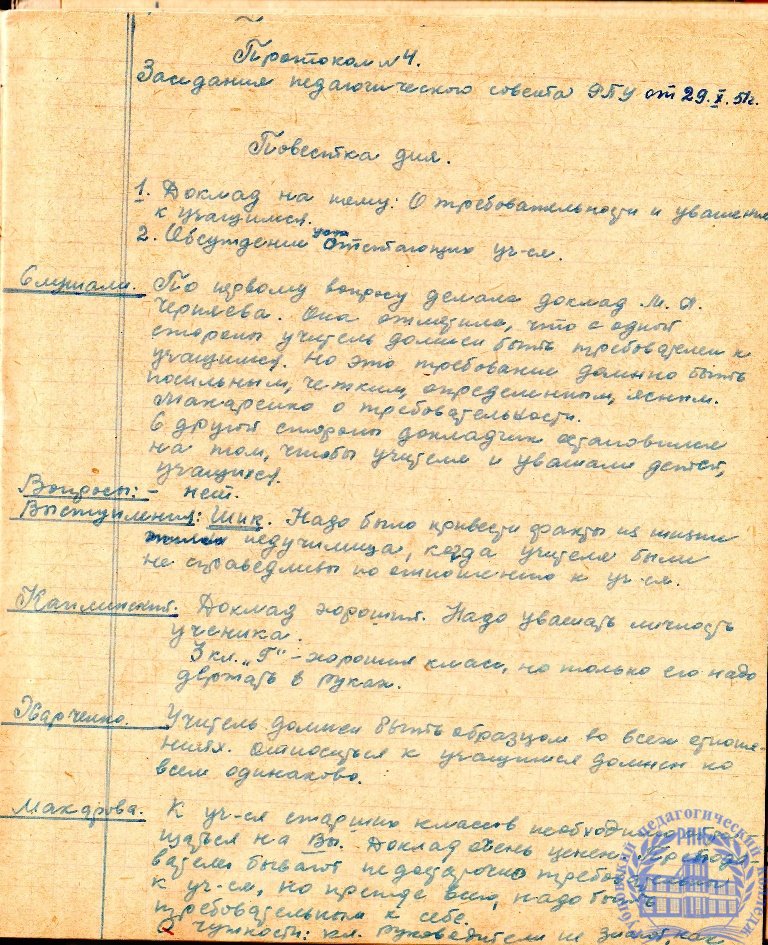 Протокол №4.
Заседания педагогического совета РПУ от 29.X.51г.
Повестка дня.
1. Доклад на тему: О требовательности и уважении
к учащимся.
2. Обсуждение отстающих уч-ся.
Слушали. По первому вопросу делала доклад М. Я.
Черняева. Она отметила, что с одной
стороны учитель должен быть требователен к
учащимся. Но это требование должно быть
посильным, четким, определенным, ясным.
Макаренко о требовательности.
С другой стороны докладчик остановился
на том, чтобы учителя и уважали детей,
учащихся.
Вопросы: - нет.
Выступления: Шик. Надо было привести факты из жизни
педучилища, когда учителя были
не справедливы по отношению к уч-ся.
Каплинский. Доклад хороший. Надо уважать личность
ученика.
3 кл. „Г" - хороший класс, но только его надо
держать в руках.
Харченко. Учитель должен быть образцом во всех отноше-
ниях. Относиться к учащимся должен ко
всем одинаково.
Макарова. К уч-ся старших классов необходимо обра-
щаться на Вы. Доклад очень ценен. Препода-
ватели бывают недостаточно требовательны
к уч-ся, но прежде всего, надо быть
требовательным к себе.
О чуткости: кл. руководители не знают, как
педагогический колледж
РПК